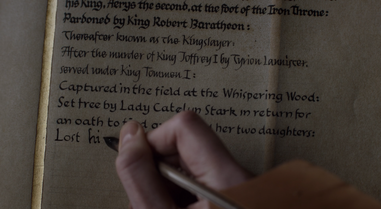 his King, Aerys the second, at the foot of the Iron Throne:
Pardoned by King Robert Baratheon:
Thereafter known as the Kingslayer:
After the murder of King Joffrey I by Tyrion Lannister,
served under King Tommen I:
Captured in the field at the Whispering Wood:
Set free by Lady Catelyn Stark in return for
an oath to find her two daughters:
Lost hi